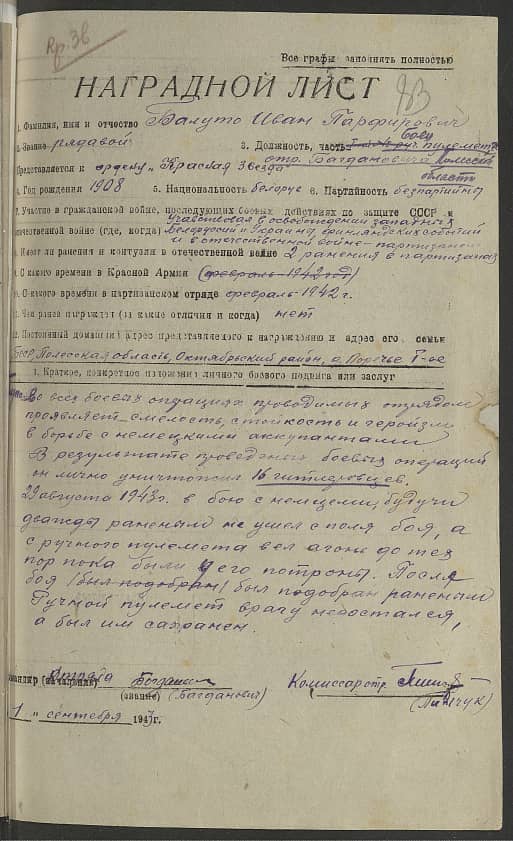 Все графы заполнять полностью
НАГРАДНОЙ ЛИСТ
1. Фамилия, имя и отчество Балуто Иван Парфирович
2. Звание рядовой 3. Должность, часть боец руч. пулемет
отр. Багдановича
Представляется к ордену "Красная Звезда" область
4. Год рождения 1908 5. Национальность белорус 6. Партийность безпартийный
7. Участие в гражданской войне, последующих боевых действиях по защите СССР и
Учавствовал в освобождении западной
отечественной войне (где, когда) Белоруссии и Украины, финляндских событий
и в отечественной войне - партизаном
8. Имеет ли ранения и контузии в отечественной войне 2 ранения в партизанах
9. С какого времени в Красной Армии (февраль 1942 год)
10. С какого времени в партизанском отряде февраль 1942 г.
11. Чем ранее награжден (за какие отличия и когда) нет
12. Постоянный домашний адрес представляемого к награждению и адрес его семьи
БССР, Полесская область, Октябрьский район, д. Поречье 1-ое
1. Краткое, конкретное изложение личного боевого подвига или заслуг
Во всех боевых операциях проводимых отрядом
проявляет смелость, стойкость и героизм
в борьбе с немецкими аккупантами
В результате проведеных боевых операций
он лично уничтожил 16 гитлеровцев.
29 августа 1943 г. в бою с немцами, будучи
дважды раненым не ушел с поля боя, а
с ручного пулемета вел агонь до тех
пор пока были у него потроны. После
боя (был подобран) был подобран раненым
Ручной пулемет врагу недостался,
а был им сахранен.
Командир (начальник) Отряда
(звание) (Багданович)
Комиссар отр.
(Пинчук)
"1" сентября 1943 г.